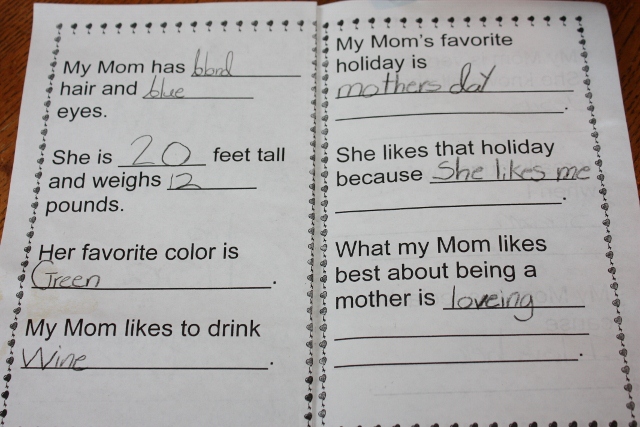 My Mom has blond
hair and blue
eyes.
She is 20 feet tall
and weighs 12
pounds.
Her favorite color is
Green.
My Mom likes to drink
Wine.
My Mom's favorite
holiday is
mothers day
.
She likes that holiday
because She likes me
.
What my Mom likes
best about being a
mother is loveing
.